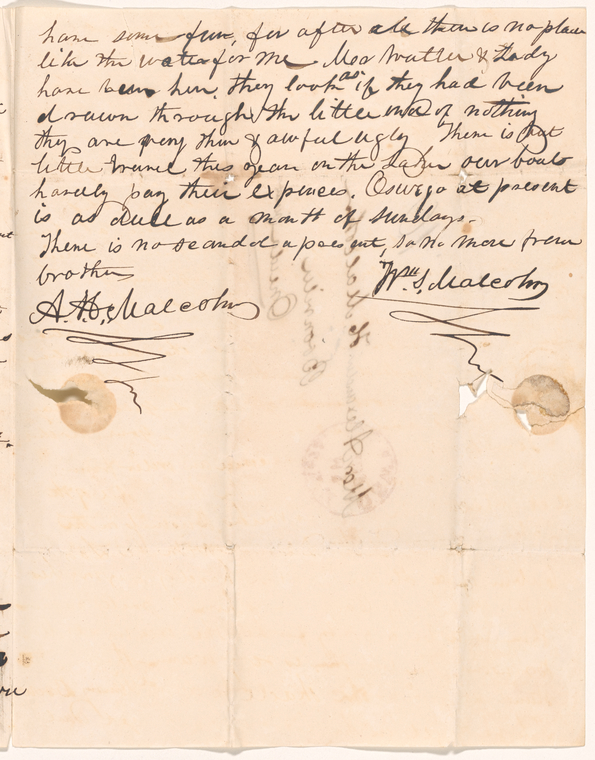 have some fun, for after all there is no place
like the water for me Mr Walter & Lady
have been her, they look as if they had been
drawn through the little end of nothing
they are very thin & awful ugly There is but
little this year on the Lakes our boats
hardly pay their expences. Oswego at present
is as dull as a month of sundays.
There is no scandel a present, so no more from
brother
Wm S. Malcolm
A. H. Malcolm